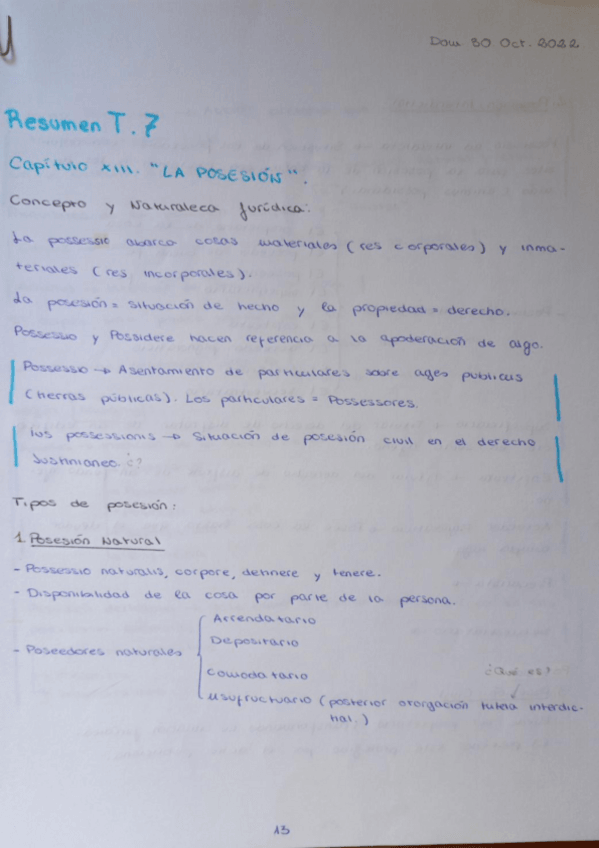 Dom 30 Oct. 2022
Resumen T. 7
Capítulo XIII. "LA POSESIÓN".
Concepto y Naturaleca Jurídica:
La possessio abarca cosas materiales (res corporales) y inma-
teriales (res incorporales).
La posesión = situación de hecho y la propiedad = derecho.
Possessio y Possidere hacen referencia a la apoderación de algo.
Possessio → Asentamiento de particulares sobre ager publicus
(tierras públicas). Los particulares = Possessores.
Ius possessionis → Situación de posesión civil en el derecho
Justinianeo. ¿?
Tipos de posesión:
1. Posesión Natural
- Possessio naturalis, corpore, detinere y tenere.
- Disponibilidad de la cosa por parte de la persona.
- Poseedores naturales
Arrendatario
Depositario
Comodatario
¿Qué es?
Usufructuario (posterior otorgación tutela interdic-
tal.)
13